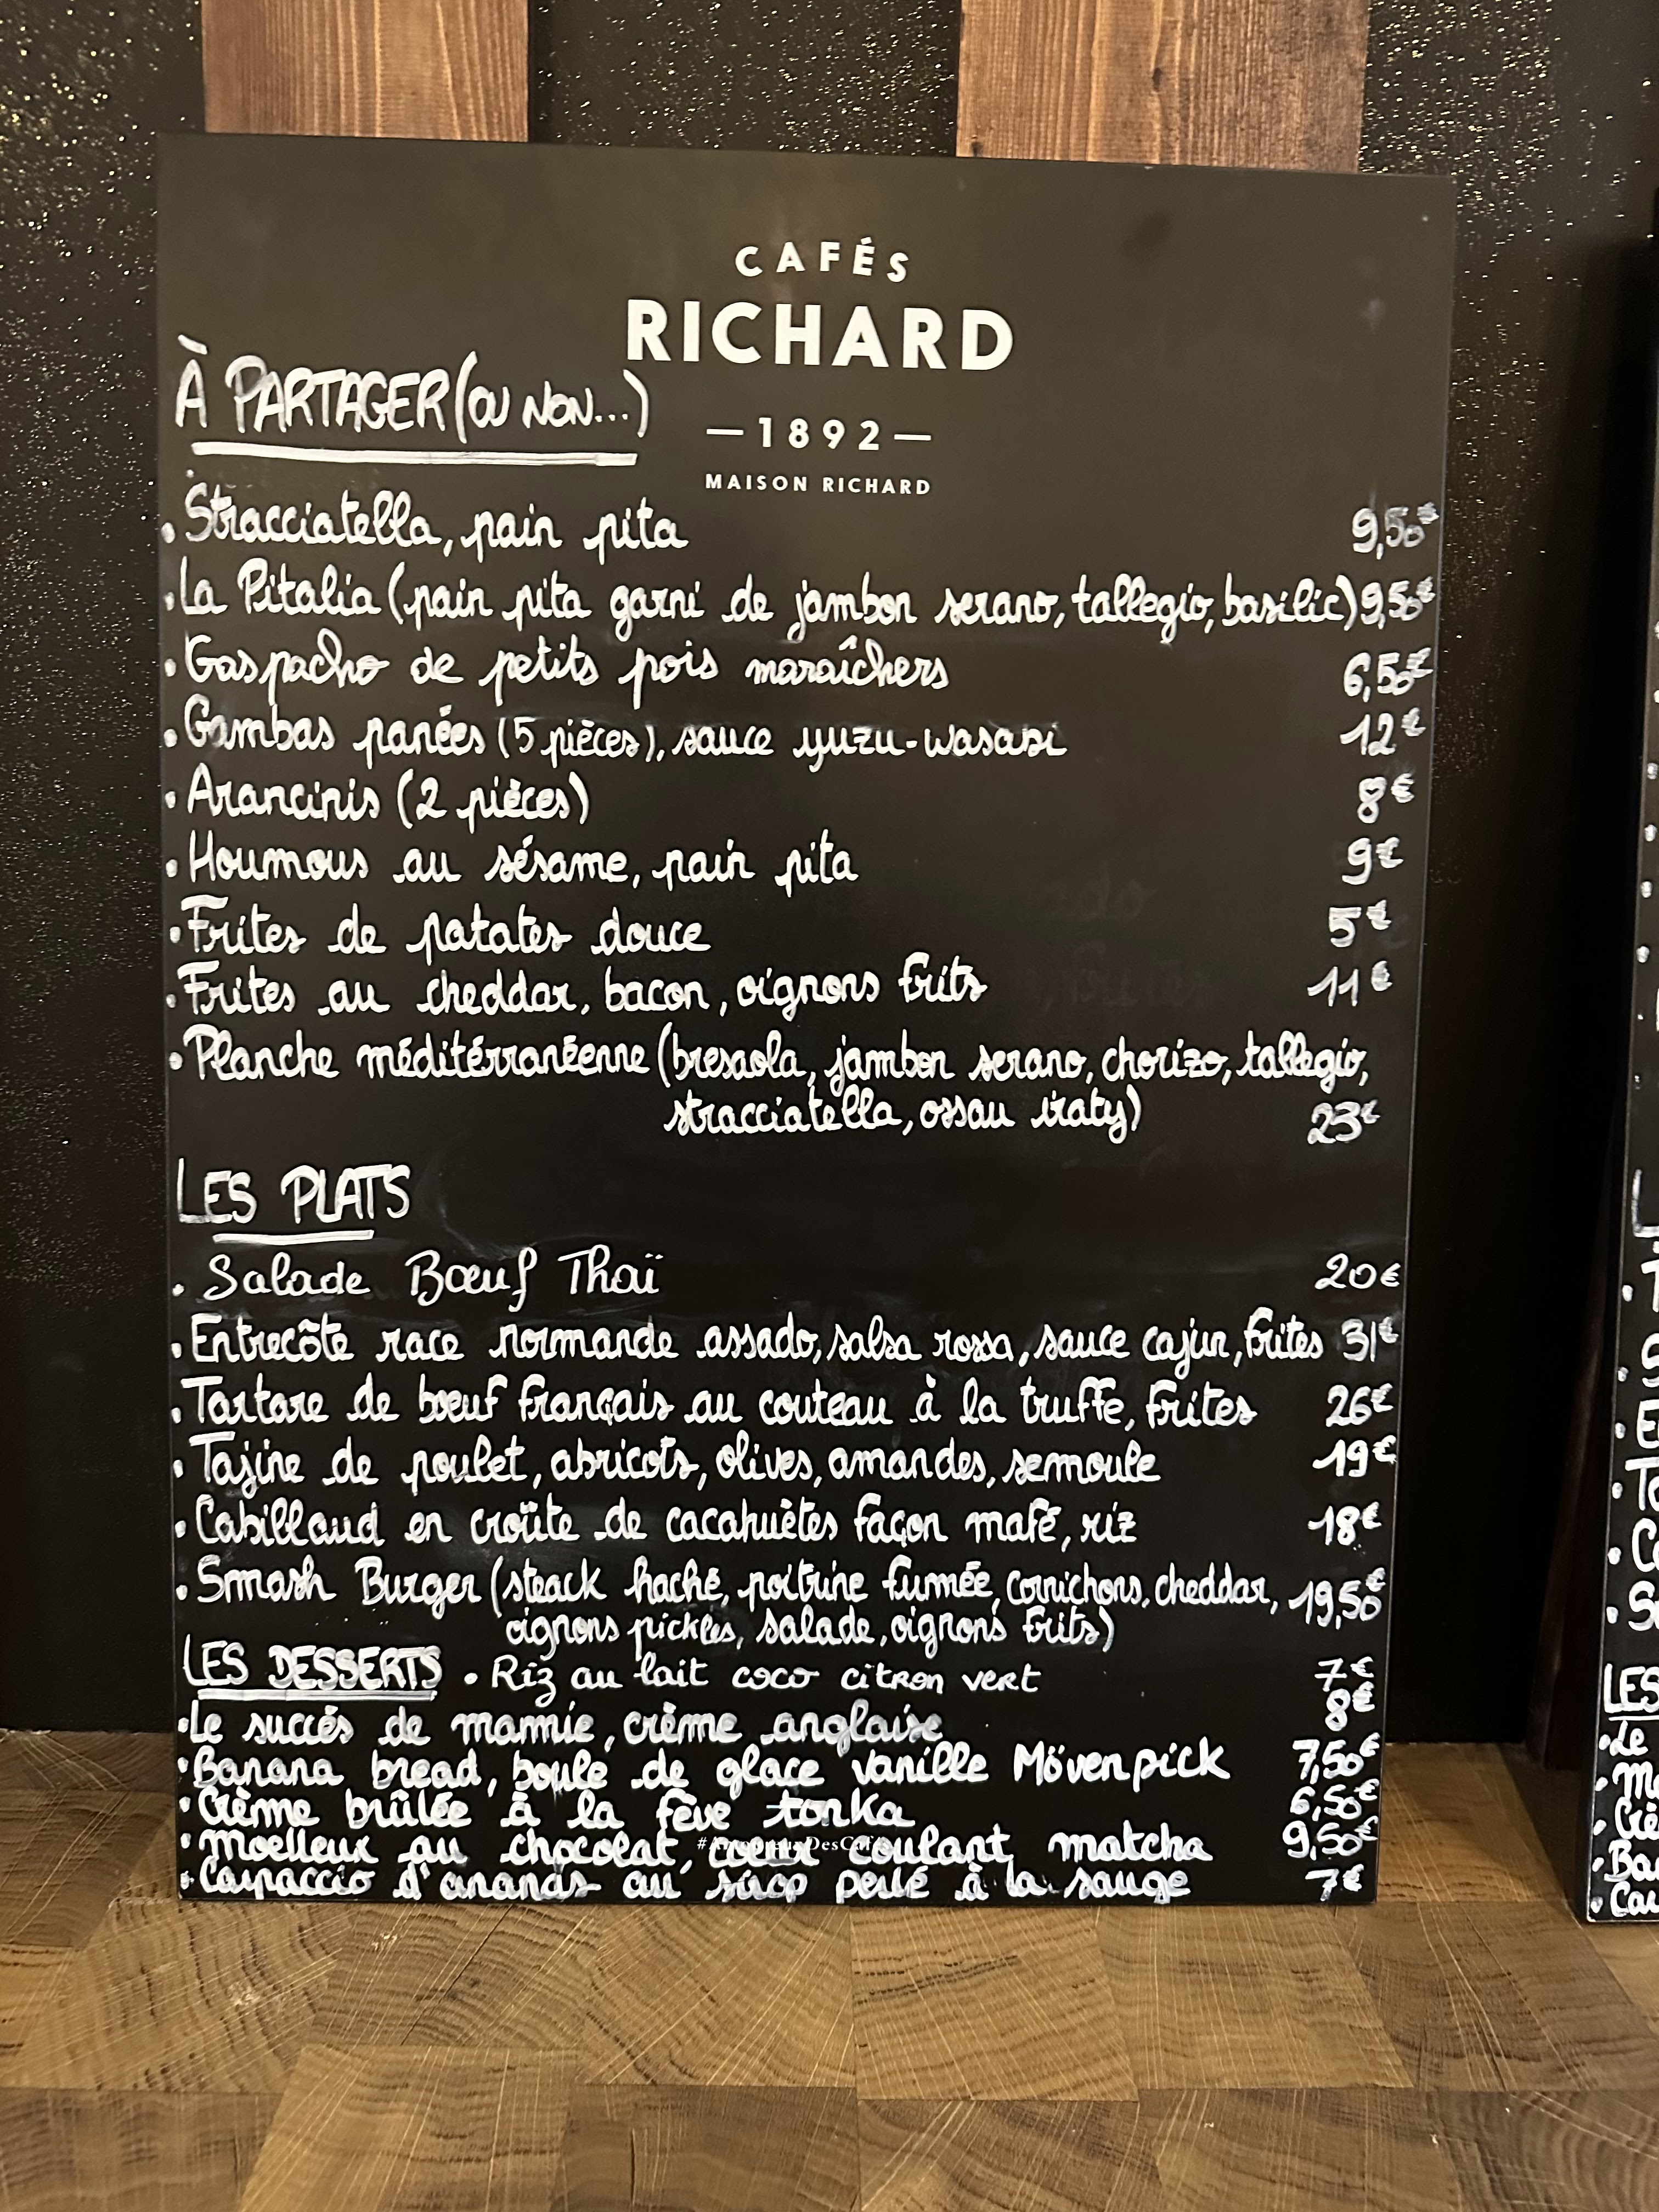 CAFÉS
RICHARD
— 1892 —
MAISON RICHARD
À PARTAGER (OU NON...)
• Stracciatella, pain pita 9,50€
• La Pitalia (pain pita garni de jambon serano, tallegio, basilic) 9,50€
• Gaspacho de petits pois maraîchers 6,50€
• Gambas panées (5 pièces), sauce yuzu-wasabi 12€
• Arancinis (2 pièces) 8€
• Houmous au sésame, pain pita 9€
• Frites de patates douce 5€
• Frites au cheddar, bacon, oignons frits 11€
• Planche méditérranéenne (bresaola, jambon serano, chorizo, tallegio,
stracciatella, ossau iraty) 23€
LES PLATS
• Salade Bœuf Thaï 20€
• Entrecôte race normande assado, salsa rossa, sauce cajun, frites 31€
• Tartare de bœuf français au couteau à la truffe, frites 26€
• Tajine de poulet, abricots, olives, amandes, semoule 19€
• Cabillaud en croûte de cacahuètes façon mafé, riz 18€
• Smash Burger (steack haché, poitrine fumée, cornichons, cheddar, 19,50€
oignons pickles, salade, oignons frits)
LES DESSERTS • Riz au lait coco citron vert 7€
• Le succés de mamie, crème anglaise 8€
• Banana bread, boule de glace vanille Mövenpick 7,50€
• Crème brûlée à la fève tonka 6,50€
• Moelleux au chocolat, coeur coulant matcha 9,50€
• Carpaccio d'ananas au sirop perlé à la sauge 7€